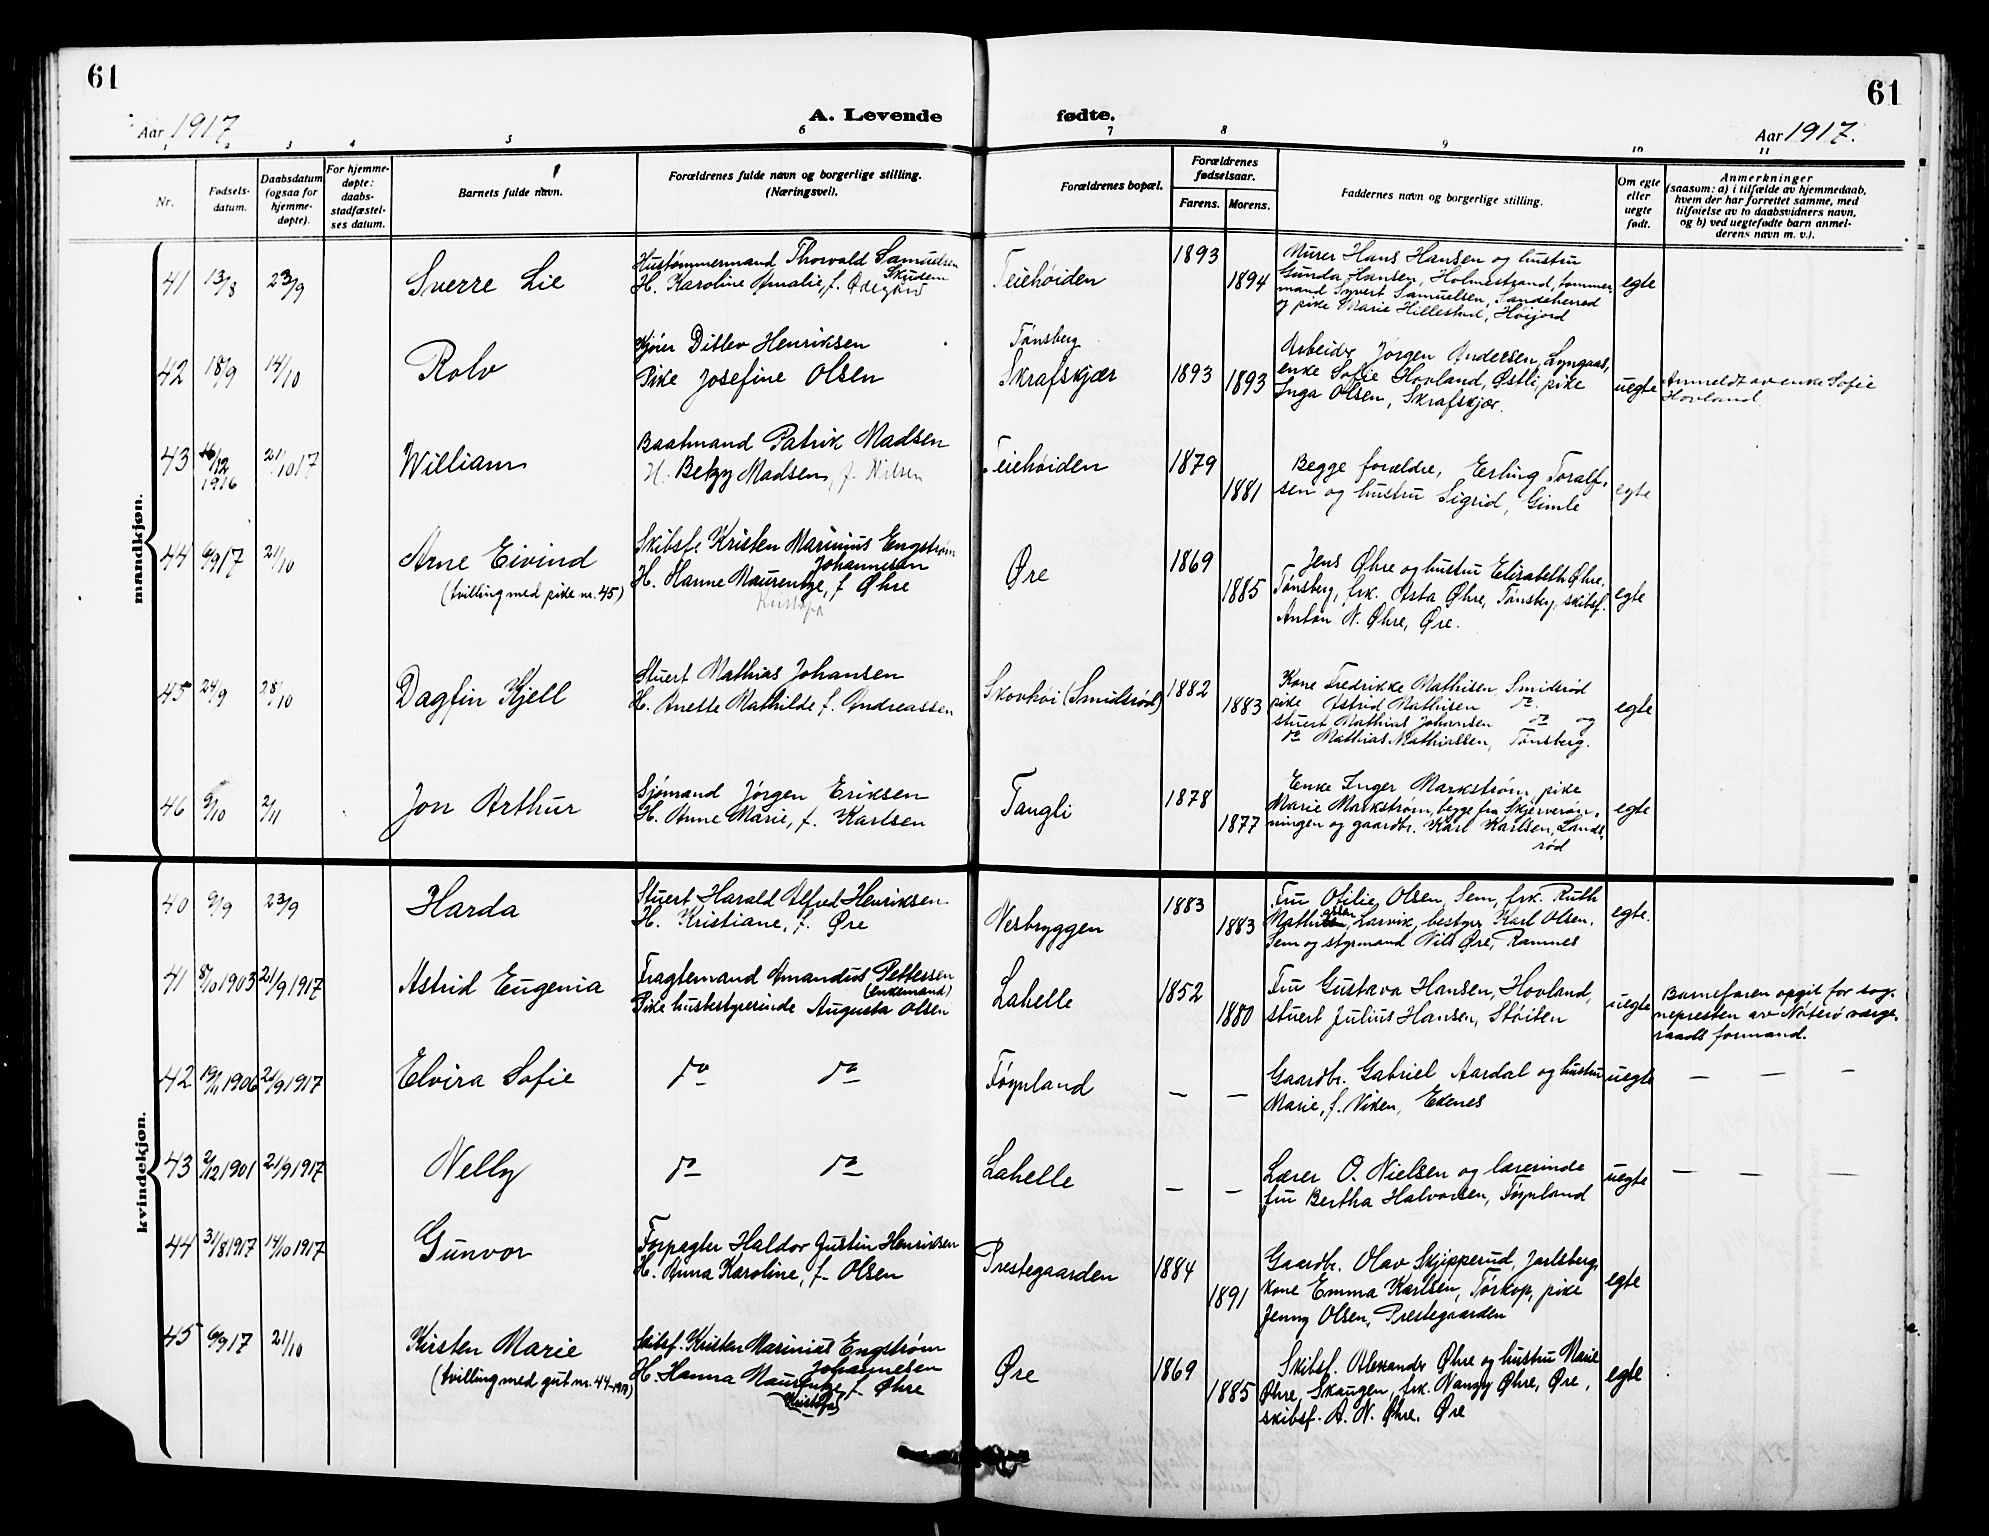 61
61
Aar 1917
A. Levende fødte.
Aar 1917.
1 2 3 4 5 6 7 8 9 10 11
Nr.
Fødsels-
datum.
Daabsdatum
(ogsaa for
hjemme-
døpte).
For hjemme-
døpte:
daabs-
stadfæstel-
ses datum.
Barnets fulde navn.
Forældrenes fulde navn og borgerlige stilling.
(Næringsvei).
Forældrenes bopæl.
Forældrenes
fødselsaar.
Farens. Morens.
Faddernes navn og borgerlige stilling.
Om egte
eller
uegte
født.
Anmerkninger
(saasom: a) i tilfælde av hjemmedaab,
hvem der har forrettet samme, med
tilføielse av to daabsvidners navn,
og b) ved uegtefødte barn anmel-
derens navn m. v.).
mandkjøn.
41 13/8 23/9 Sverre Lie
Hustømmermand Thorvald Samuelsen
Skuden
H. Karoline Amalie, f. Ødegård
Teiehøiden 1893 1894
Murer Hans Hansen og hustru
Gunda Hansen, Holmestrand, tømmer-
mand Syvert Samuelsen, Sandeherred
og pike Marie Hillestad, Høijord
egte
42 18/9 14/10 Rolv
Kjører Ditlev Henriksen
Pike Josefine Olsen
Tønsberg
Skrafskjær 1893 1893
Arbeider Jørgen Andersen, Lyngaas,
enke Sofie Hovland, Østli, pike
Inga Olsen, Skrafskjær.
uegte
Anmeldt av enke Sofie
Hovland
43 16/12 1916 21/10 17 William
Baatmand Patrik Madsen
H. Betzy Madsen, f. Nilsen
Teiehøiden 1879 1881
Begge forældre, Erling Toralf-
sen og hustru Sigrid, Gimle
egte
44 6/9 17 21/10 Arne Eivind
(tvilling med pike nr. 45)
Skibsf. Kristen Marinius Engstrøm
Johannesen
H. Hanne Maurentze, f. Øhre
Kristofa
Øre 1869 1885
Jens Øhre og hustru Elisabeth Øhre,
Tønsberg, frk. Asta Øhre, Tønsberg, skibsf.
Anton N. Øhre, Øre.
egte
45 24/9 28/10 Dagfin Kjell
Stuert Mathias Johansen
H. Anette Mathilde f. Andreassen
Skovhøi (Smidsrød) 1882 1883
Kone Fredrikke Mathisen, Smidsrød
pike Astrid Mathisen do.
stuert Mathias Johansen do og
do Mathias Mathiassen, Tønsberg.
egte
46 9/10 2/11 Jon Arthur
Sjømand Jørgen Eriksen
H. Anne Marie, f. Karlsen
Tangli 1878 1877
Enke Inger Markstrøm, pike
Marie Markstrøm, begge fra Skjerverøn-
ningen og gaardbr. Karl Karlsen, Lands-
rød
egte
kvindekjøn.
40 9/9 23/9 Harda
Stuert Harald Alfred Henriksen
H. Kristiane, f. Øre
Nesbryggen 1883 1883
Fru Otilie Olsen, Sem, frk. Ruth
Mathiassen, Larvik, bestyr. Karl Olsen,
Sem og styrmand Nils Øre, Ramnes
egte.
41 8/10 1903 21/9 1917 Astrid Eugenia
Fragtemand Amandus Pettersen
(enkemand)
Pike husbestyrerinde Augusta Olsen
Lahelle 1852 1880
Fru Gustava Hansen, Hovland,
stuert Julius Hansen, Støiten
uegte
Barnefaren opgit for sog-
nepresten av Nøterø værge-
raads formand.
42 19/11 1906 21/9 1917 Elvira Sofie
do do
Føynland — —
Gaardbr. Gabriel Aardal og hustru
Marie, f. Viken, Ekenes
uegte — — —
43 2/12 1901 21/9 1917 Nelly
do do
Lahelle — —
Lærer O. Nielsen og lærerinde
fru Bertha Halvorsen, Føynland
uegte — — —
44 31/8 1917 14/10 1917 Gunvor
Forpagter Haldor Justin Henriksen
H. Anna Karoline, f. Olsen
Prestegaarden 1884 1891
Gaardbr. Olav Skjipperud, Jarlsberg,
kone Emma Karlsen, Tørkop, pike
Jenny Olsen, Prestegaarden
egte
45 6/9 17 21/10 Kirsten Marie
(tvilling med gut nr. 44-1917)
Skibsf. Kristen Marinius Engstrøm
Johannesen
H. Hanna Maurentze, f. Øhre
(Kristofa)
Øre 1869 1885
Skibsf. Alexander Øhre og hustru Marie
Øhre, Skaugen, frk. Nanny Øhre, Øre,
skibsf. A. N. Øhre, Øre
egte